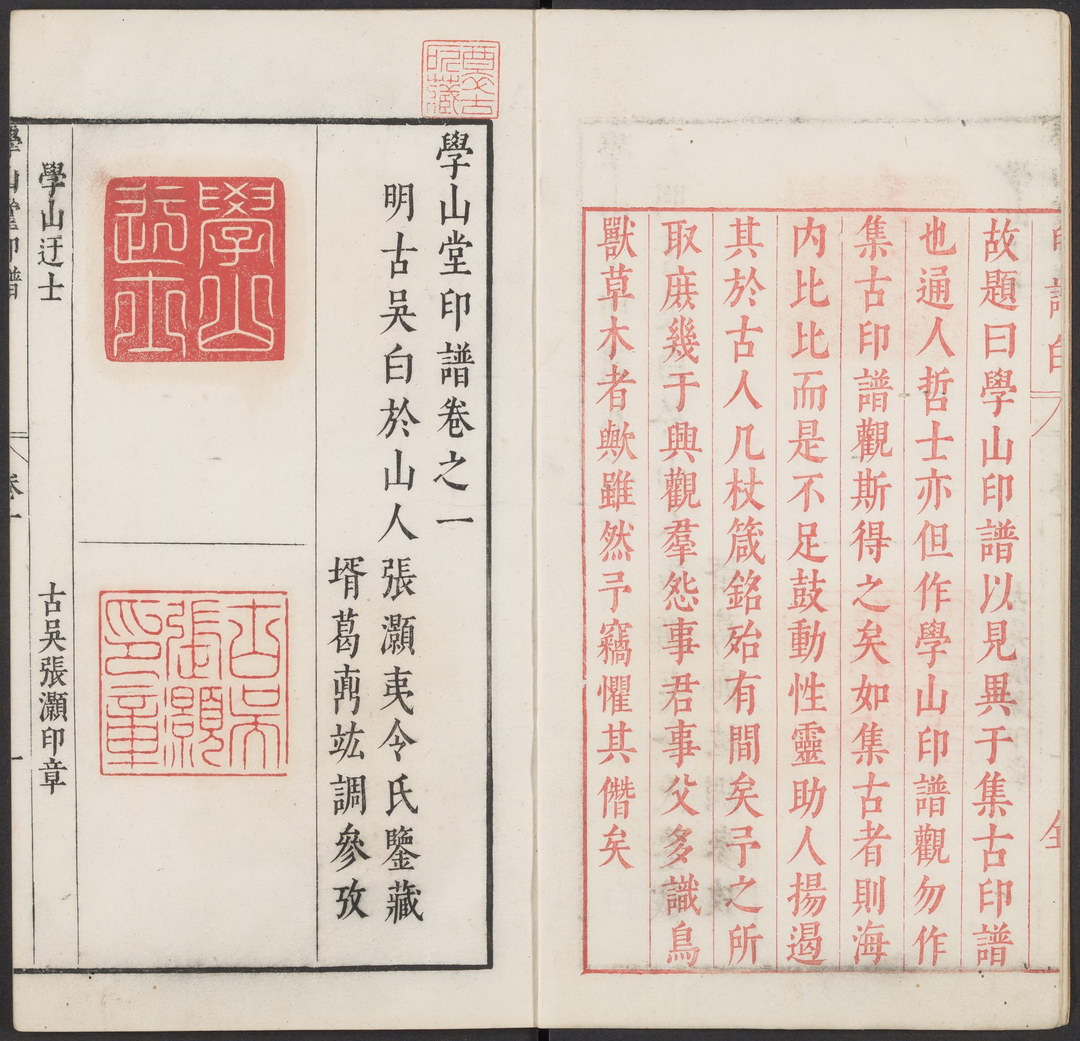 故題曰學山印譜以見異于集古印譜
也通人哲士亦但作學山印譜觀勿作
集古印譜觀斯得之矣如集古者則海
内比比而是不足鼓動性靈助人揚遏
其於古人几杖箴銘殆有間矣予之所
取庻幾于興觀羣怨事君事父多識鳥
獸草木者歟雖然予竊懼其僭矣
學山堂印譜卷之一
明古吳白於山人張灝夷令氏鑒藏
壻葛鼏竑調參攷
學山迂士
古吳張灝印章
學山迂士
古吳張灝印章
學山堂印譜
卷一
一